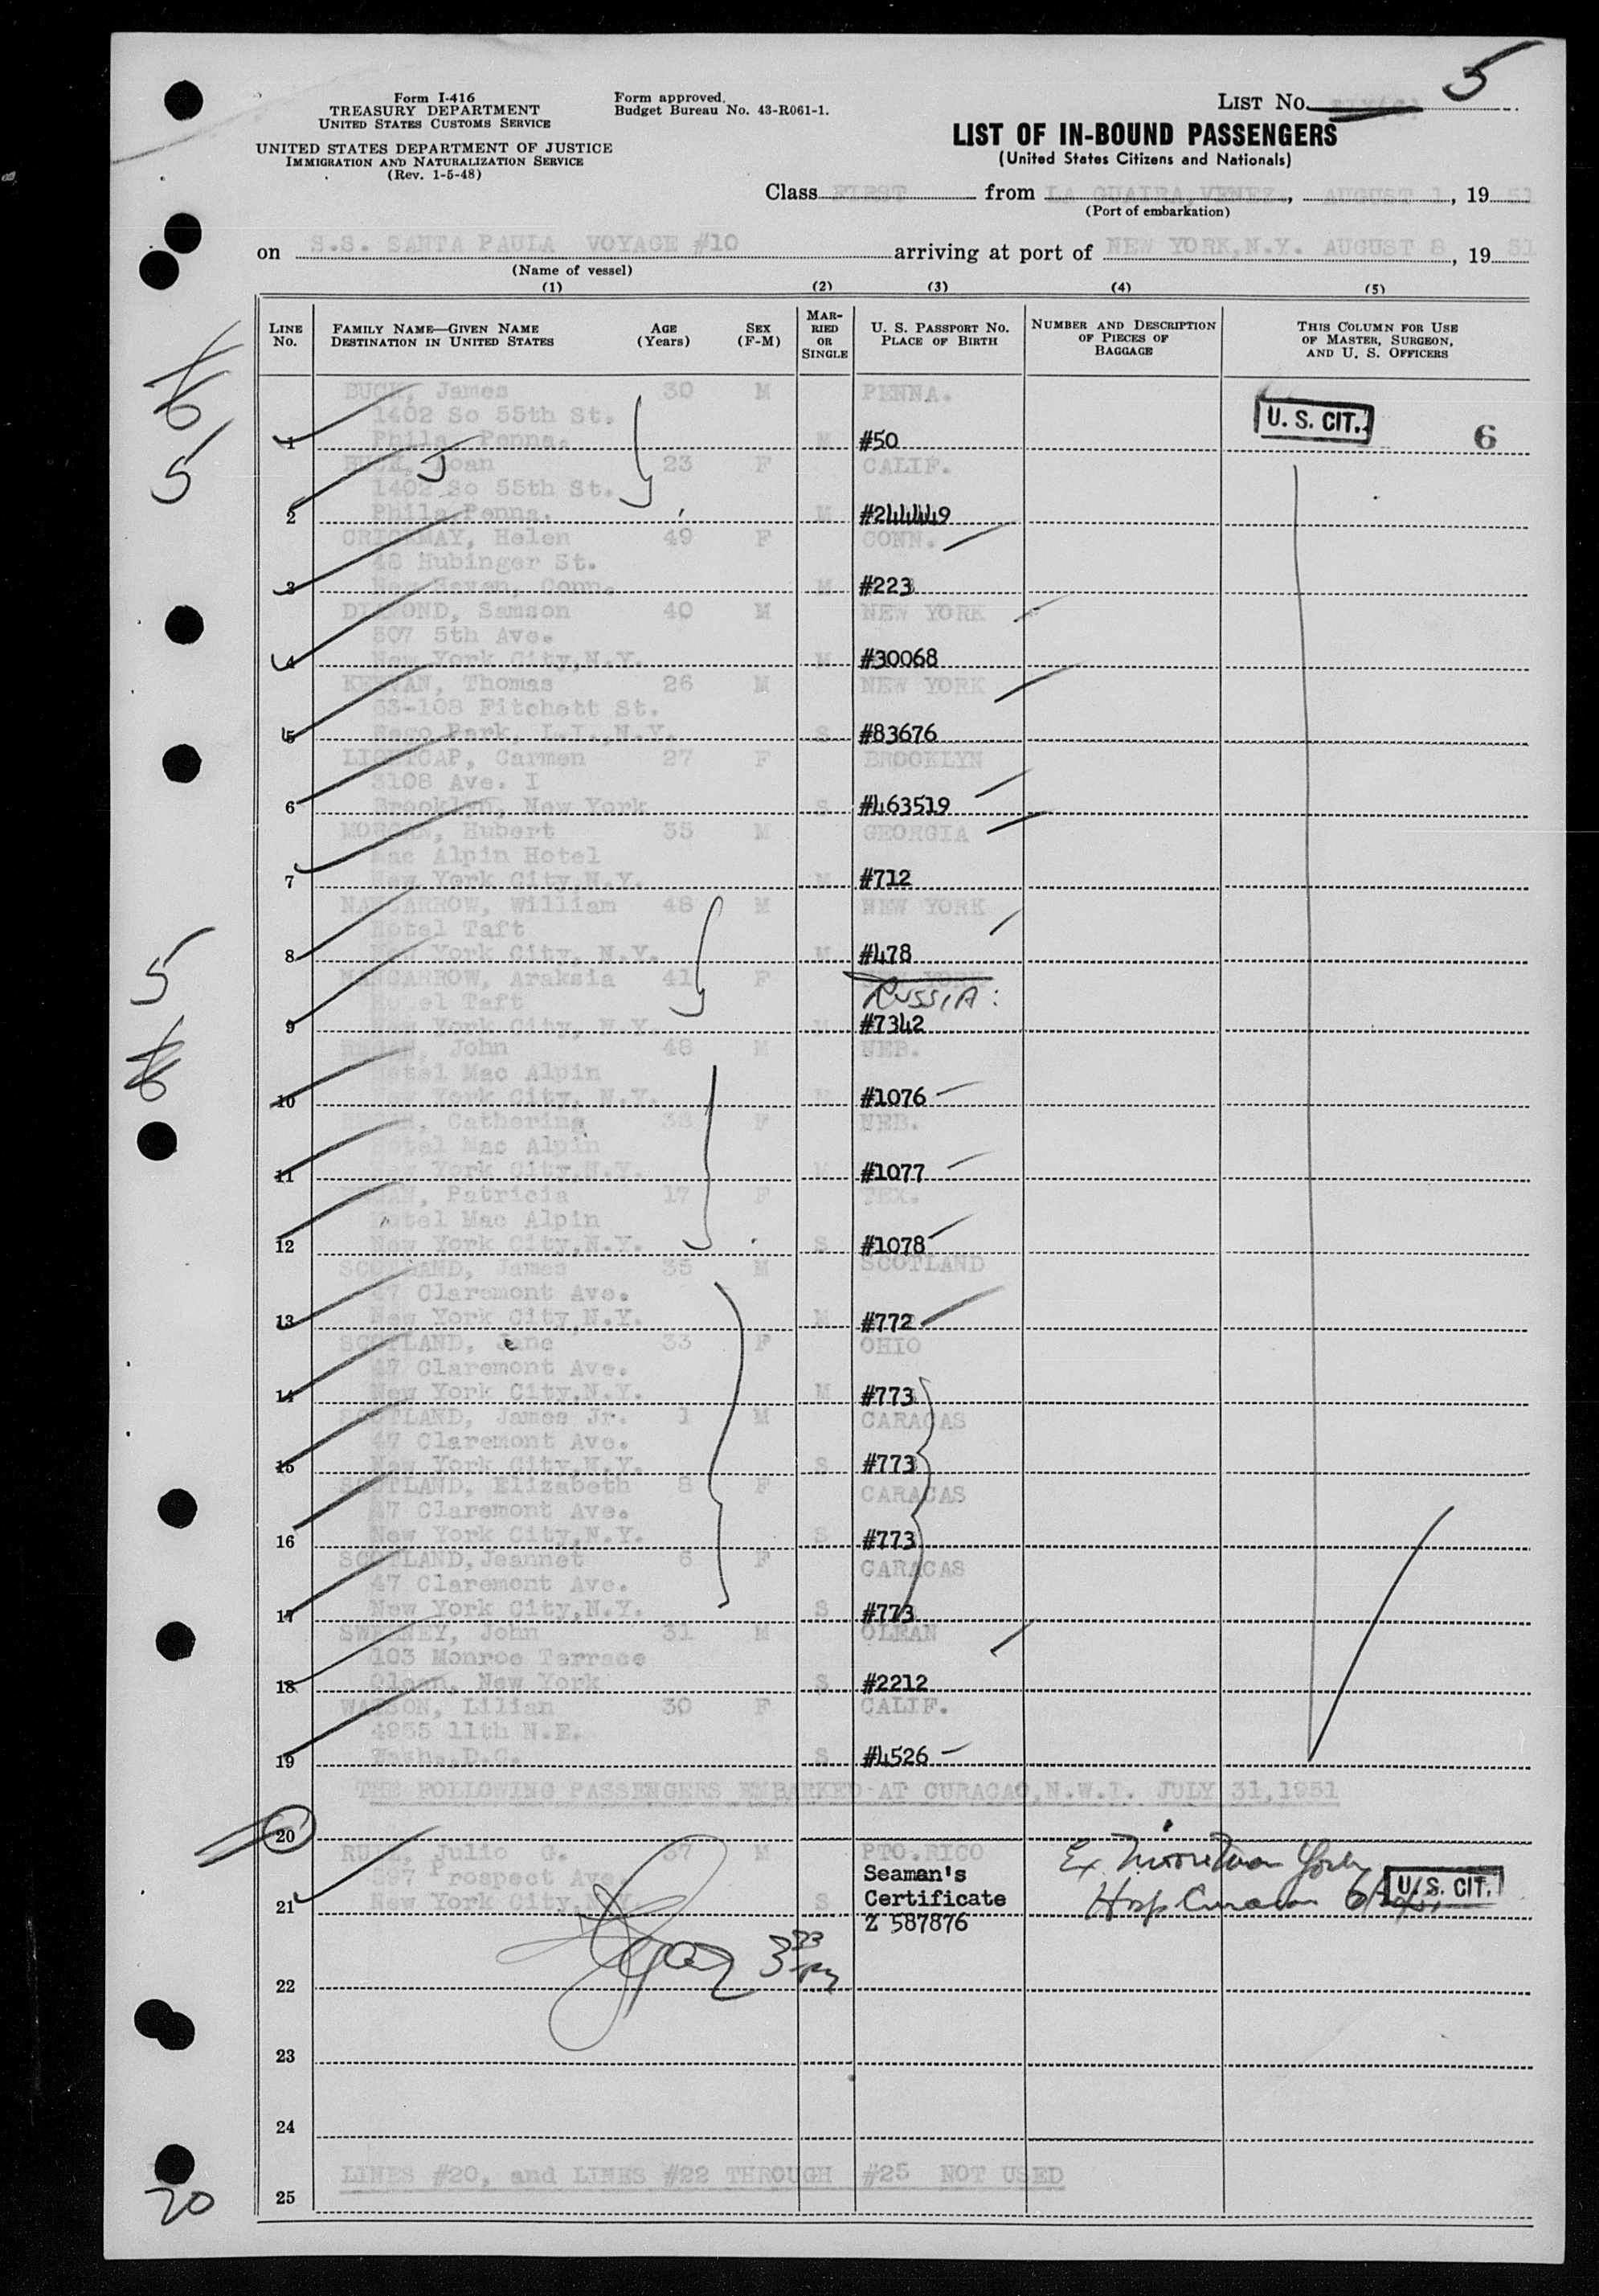 5
Form I-416
TREASURY DEPARTMENT
UNITED STATES CUSTOMS SERVICE
UNITED STATES DEPARTMENT OF JUSTICE
IMMIGRATION AND NATURALIZATION SERVICE
(Rev. 1-5-48)
Form approved.
Budget Bureau No. 43-R061-1.
LIST No.
LIST OF IN-BOUND PASSENGERS
(United States Citizens and Nationals)
Class FIRST from LA GUAIRA, VENEZ., AUGUST 1, 19 51
(Port of embarkation)
on S.S. SANTA PAULA VOYAGE #10 arriving at port of NEW YORK, N.Y. AUGUST 8, 19 51
(Name of vessel)
(1) (2) (3) (4) (5)
LINE No. FAMILY NAME—GIVEN NAME DESTINATION IN UNITED STATES AGE (Years) SEX (F-M) MARRIED OR SINGLE U. S. PASSPORT No. PLACE OF BIRTH NUMBER AND DESCRIPTION OF PIECES OF BAGGAGE THIS COLUMN FOR USE OF MASTER, SURGEON, AND U. S. OFFICERS
BUCK, James 30 M PENNA.
1402 So 55th St.
1 Phila, Penna. M #50 U. S. CIT. 6
BUCK, Joan 23 F CALIF.
1402 So 55th St.
2 Phila, Penna. M #244449
CRICKMAY, Helen 49 F CONN.
48 Hubinger St.
3 New Haven, Conn. M #223
DIAMOND, Samson 40 M NEW YORK
507 5th Ave.
4 New York City, N.Y. M #30068
Thomas 26 M NEW YORK
63-108 Fitchett St.
5 Rego Park, L.I., N.Y. S #83676
LIGHTCAP, Carmen 27 F BROOKLYN
3108 Ave. I
6 Brooklyn, New York S #463519
MORGAN, Hubert 35 M GEORGIA
Mac Alpin Hotel
7 New York City, N.Y. M #712
NANCARROW, William 48 M NEW YORK
Hotel Taft
8 New York City, N.Y. M #478
NANCARROW, Araksia 41 F NEW YORK
Hotel Taft RUSSIA:
9 New York City, N.Y. M #7342
John 48 M NEB.
Hotel Mac Alpin
10 New York City, N.Y. M #1076
Catherine 38 F NEB.
Hotel Mac Alpin
11 New York City, N.Y. M #1077
Patricia 17 F TEX.
Hotel Mac Alpin
12 New York City, N.Y. S #1078
SCOTLAND, James 35 M SCOTLAND
47 Claremont Ave.
13 New York City, N.Y. M #772
SCOTLAND, Jane 33 F OHIO
47 Claremont Ave.
14 New York City, N.Y. M #773
SCOTLAND, James Jr. 1 M CARACAS
47 Claremont Ave.
15 New York City, N.Y. S #773
SCOTLAND, Elizabeth 8 F CARACAS
47 Claremont Ave.
16 New York City, N.Y. S #773
SCOTLAND, Jeannet 6 F CARACAS
47 Claremont Ave.
17 New York City, N.Y. S #773
SWEENEY, John 31 M OLEAN
103 Monroe Terrace
18 Olean, New York S #2212
WATSON, Lilian 30 F CALIF.
4955 11th N.E.
19 Wash., D.C. S #4526
THE FOLLOWING PASSENGERS EMBARKED AT CURACAO, N.W.I. JULY 31, 1951
20
RUIZ, Julio G. 37 M PTO.RICO
597 Prospect Ave. Seaman's
21 New York City, N.Y. S Certificate U. S. CIT.
Z 587876
22
23
24
LINES #20, and LINES #22 THROUGH #25 NOT USED
25
5
5
20